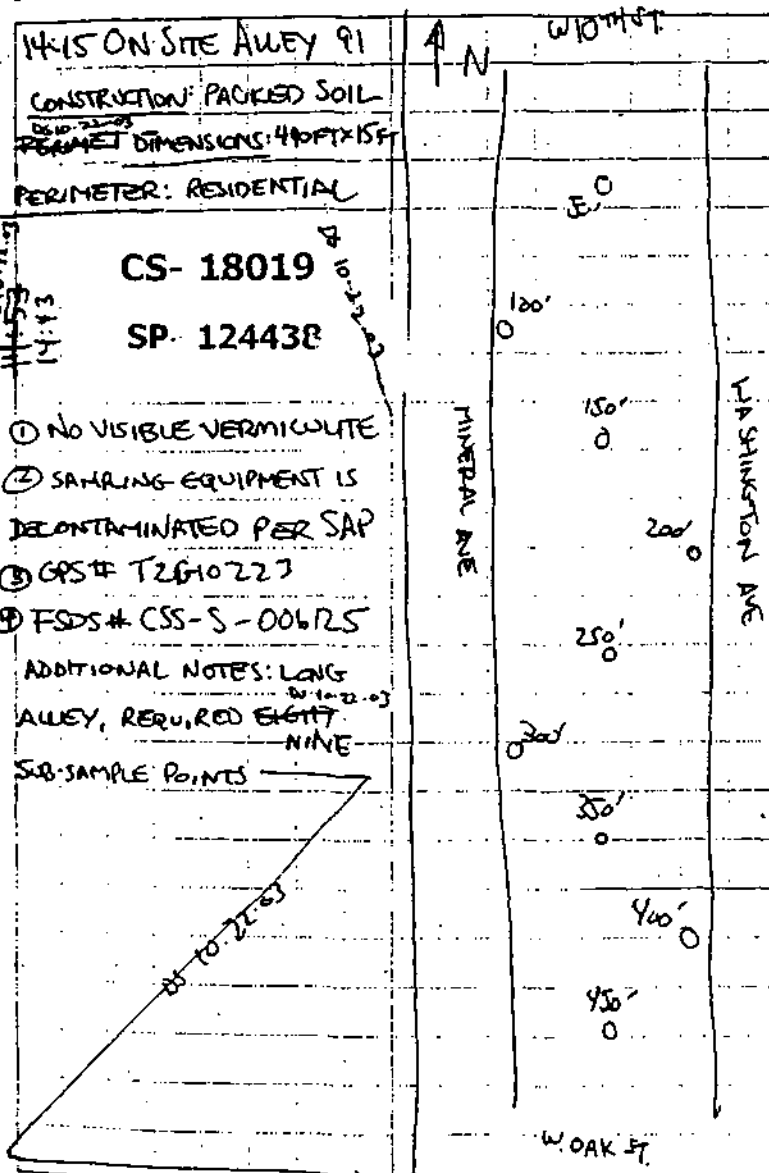 14:15 ON-SITE ALLEY 91
CONSTRUCTION: PACKED SOIL
DS 10-22-03
DIMENSIONS: 490FT X 15FT
PERIMETER: RESIDENTIAL
CS- 18019
SP- 124438
14:43
10-22-03
① NO VISIBLE VERMICULITE
② SAMPLING EQUIPMENT IS
DECONTAMINATED PER SAP
③ GPS# T2G10223
④ FSDS# CSS-S-006125
ADDITIONAL NOTES: LONG
10-22-03
ALLEY, REQUIRED EIGHT
NINE
SUB-SAMPLE POINTS
10-22-03
N
W 10TH ST.
100'
150'
200'
250'
300'
350'
400'
450'
MINERAL AVE
WASHINGTON AVE
W. OAK ST.